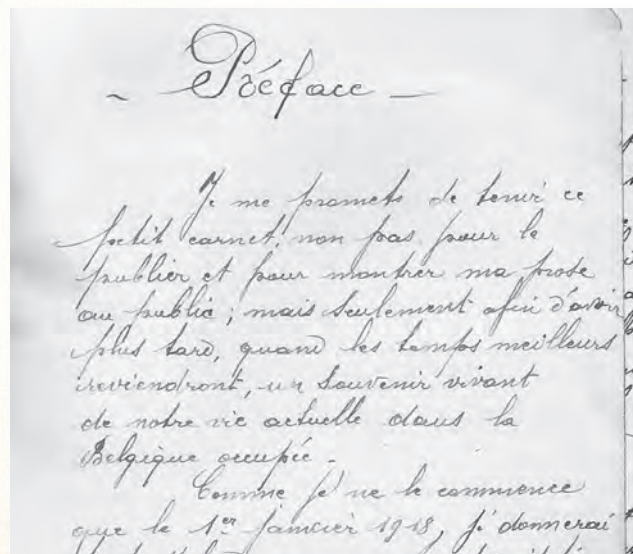 - Préface -
Je me promets de tenir ce
petit carnet, non pas pour le
publier et pour montrer ma prose
au public ; mais seulement afin d'avoir
plus tard, quand les temps meilleurs
reviendront, un souvenir vivant
de notre vie actuelle dans la
Belgique occupée.
Comme je ne le commence
que le 1er janvier 1918, je donnerai